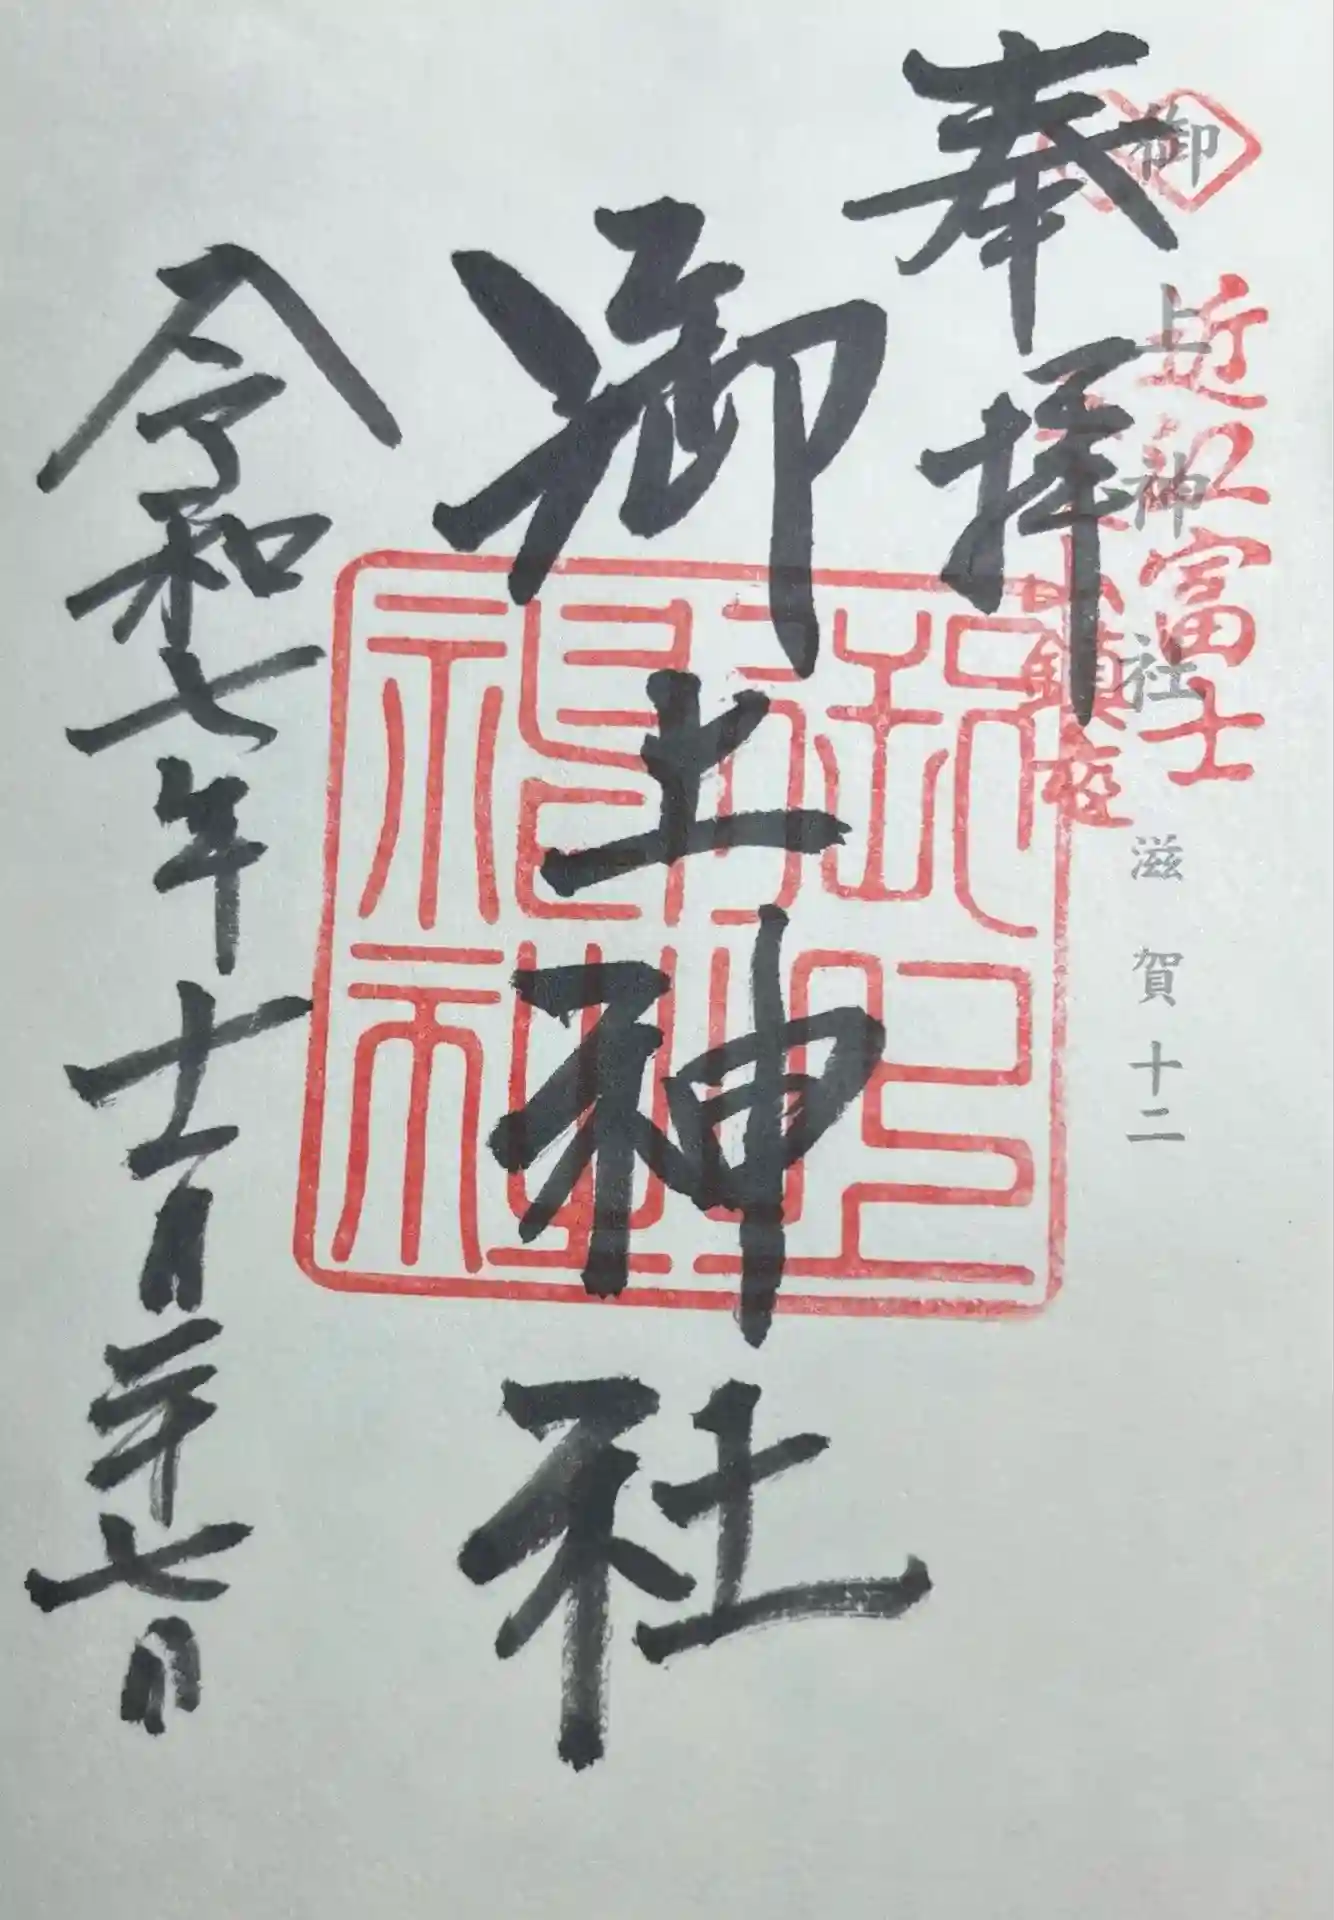 御上神社 滋賀十二
近江富士
鎮座
奉拝
御上神社
御上
神社
令和七年十一月二十七日